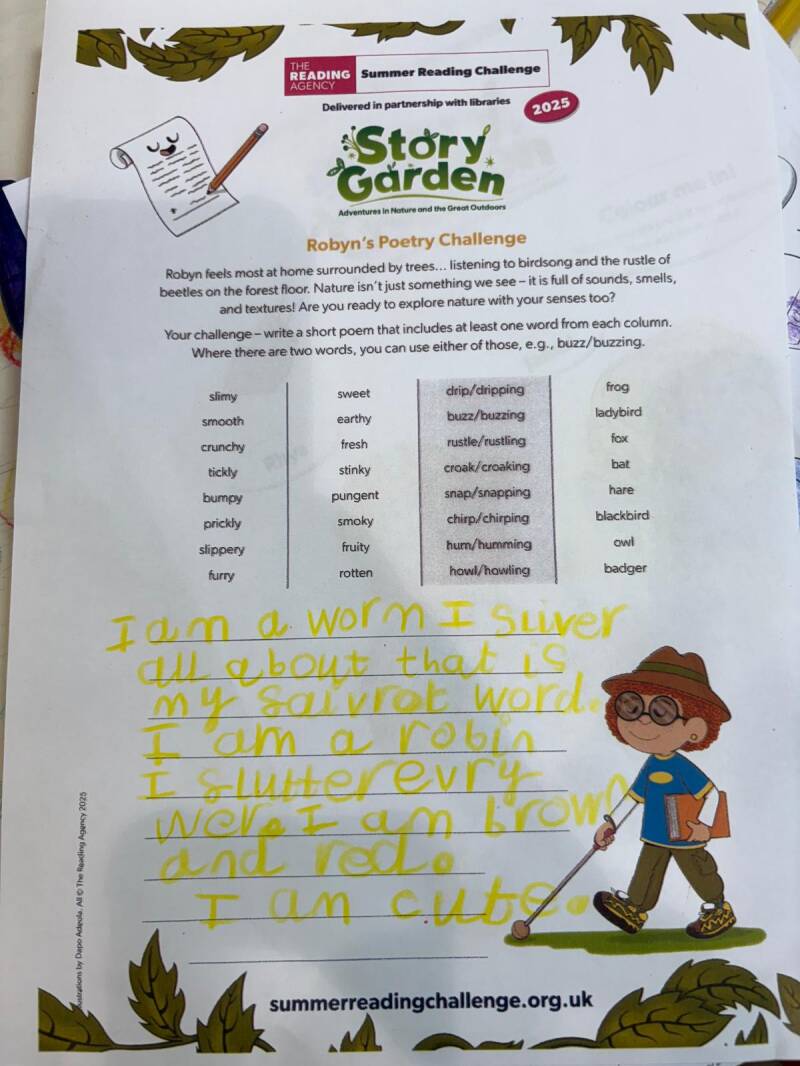 THE
READING
AGENCY
Summer Reading Challenge
Delivered in partnership with libraries
2025
Story
Garden
Adventures in Nature and the Great Outdoors
Robyn's Poetry Challenge
Robyn feels most at home surrounded by trees... listening to birdsong and the rustle of
beetles on the forest floor. Nature isn't just something we see – it is full of sounds, smells,
and textures! Are you ready to explore nature with your senses too?
Your challenge – write a short poem that includes at least one word from each column.
Where there are two words, you can use either of those, e.g., buzz/buzzing.
slimy sweet drip/dripping frog
smooth earthy buzz/buzzing ladybird
crunchy fresh rustle/rustling fox
tickly stinky croak/croaking bat
bumpy pungent snap/snapping hare
prickly smoky chirp/chirping blackbird
slippery fruity hum/humming owl
furry rotten howl/howling badger
I am a worm I sliver
all about that is
my faivrot word.
I am a robin
I flutter evry
were. I am brown
and red.
I am cute.
ustrations by Dapo Adeola. All © The Reading Agency 2025
summerreadingchallenge.org.uk